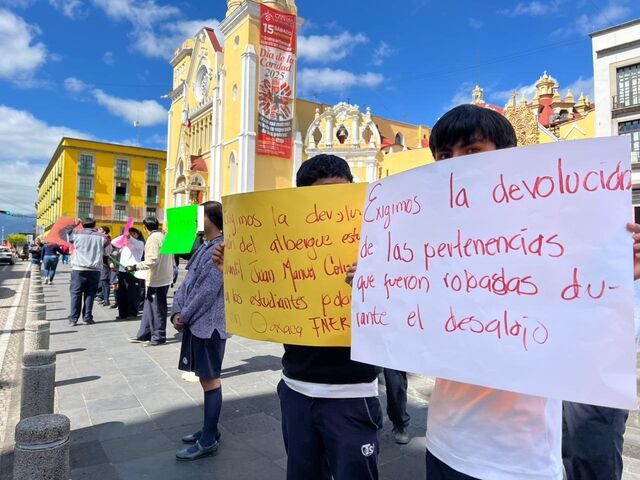 15
SÁBADO
Día de la
Caridad
2025
Exigimos la devolu
del albergue estu
Juan Manuel
a los estudiantes
Oaxaca FNERR
Exigimos la devolución
de las pertenencias
que fueron robadas du-
rante el desalojo